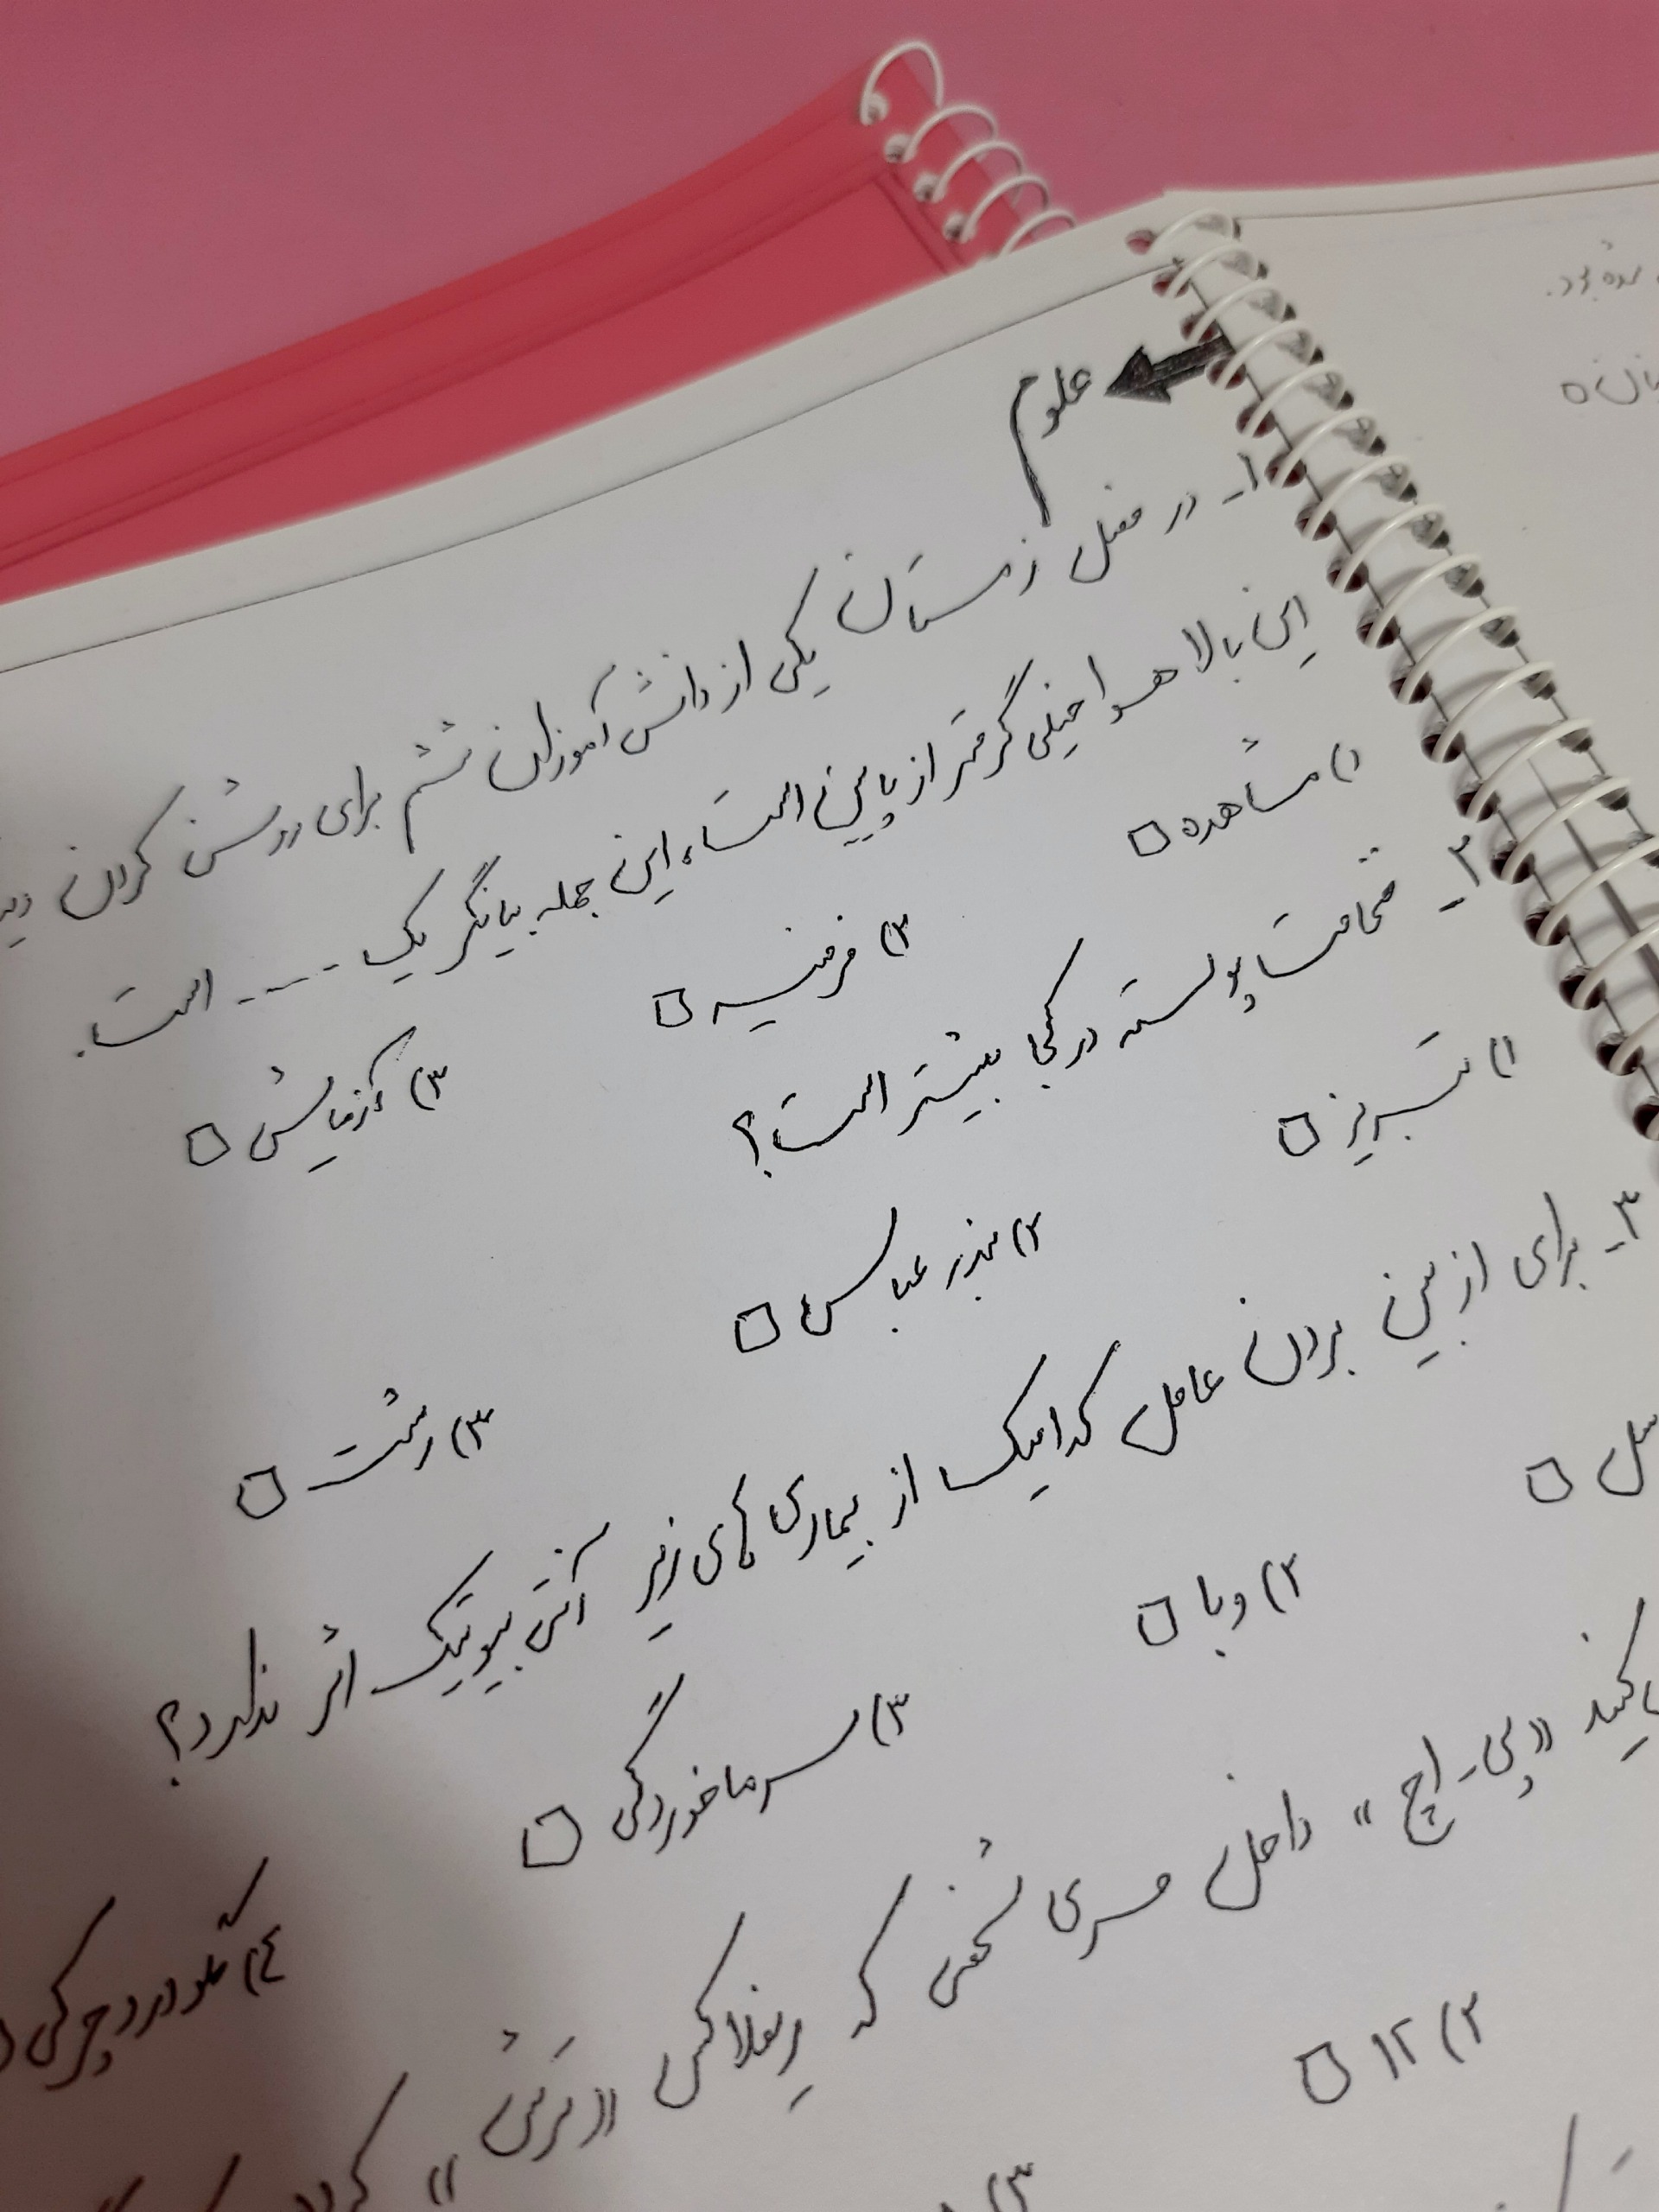 علوم
۱- در فصل زمستان یکی از دانش آموزان ششم برای روشن کردن
این بالا هوا خیلی گرمتر از پایین است، این جمله بیانگر یک ---- است.
۱) مشاهده □
۲) فرضیه □
۳) آزمایش □
۲- ضخامت پوسته در کجا بیشتر است؟
۱) تبریز □
۲) بندر عباس □
۳) رشت □
۳- برای از بین بردن عامل کدامیک از بیماری های زیر آنتی بیوتیک اثر ندارد؟
سل □
۲) وبا □
۳) سرماخوردگی □
۴) گلو درد چرکی
«پی- اچ» داخل مری شخصی که ریفلاکس «ترش»
۲) ۱۲ □
۳)